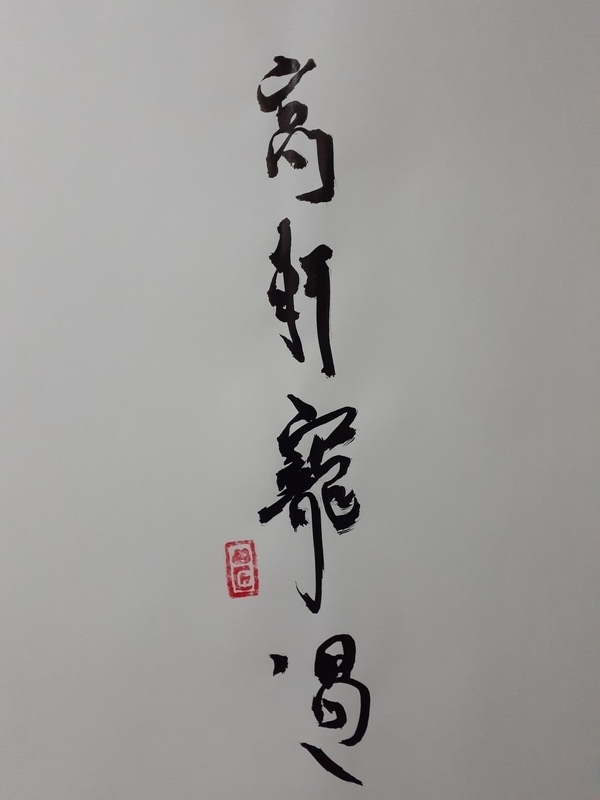 高軒寵過